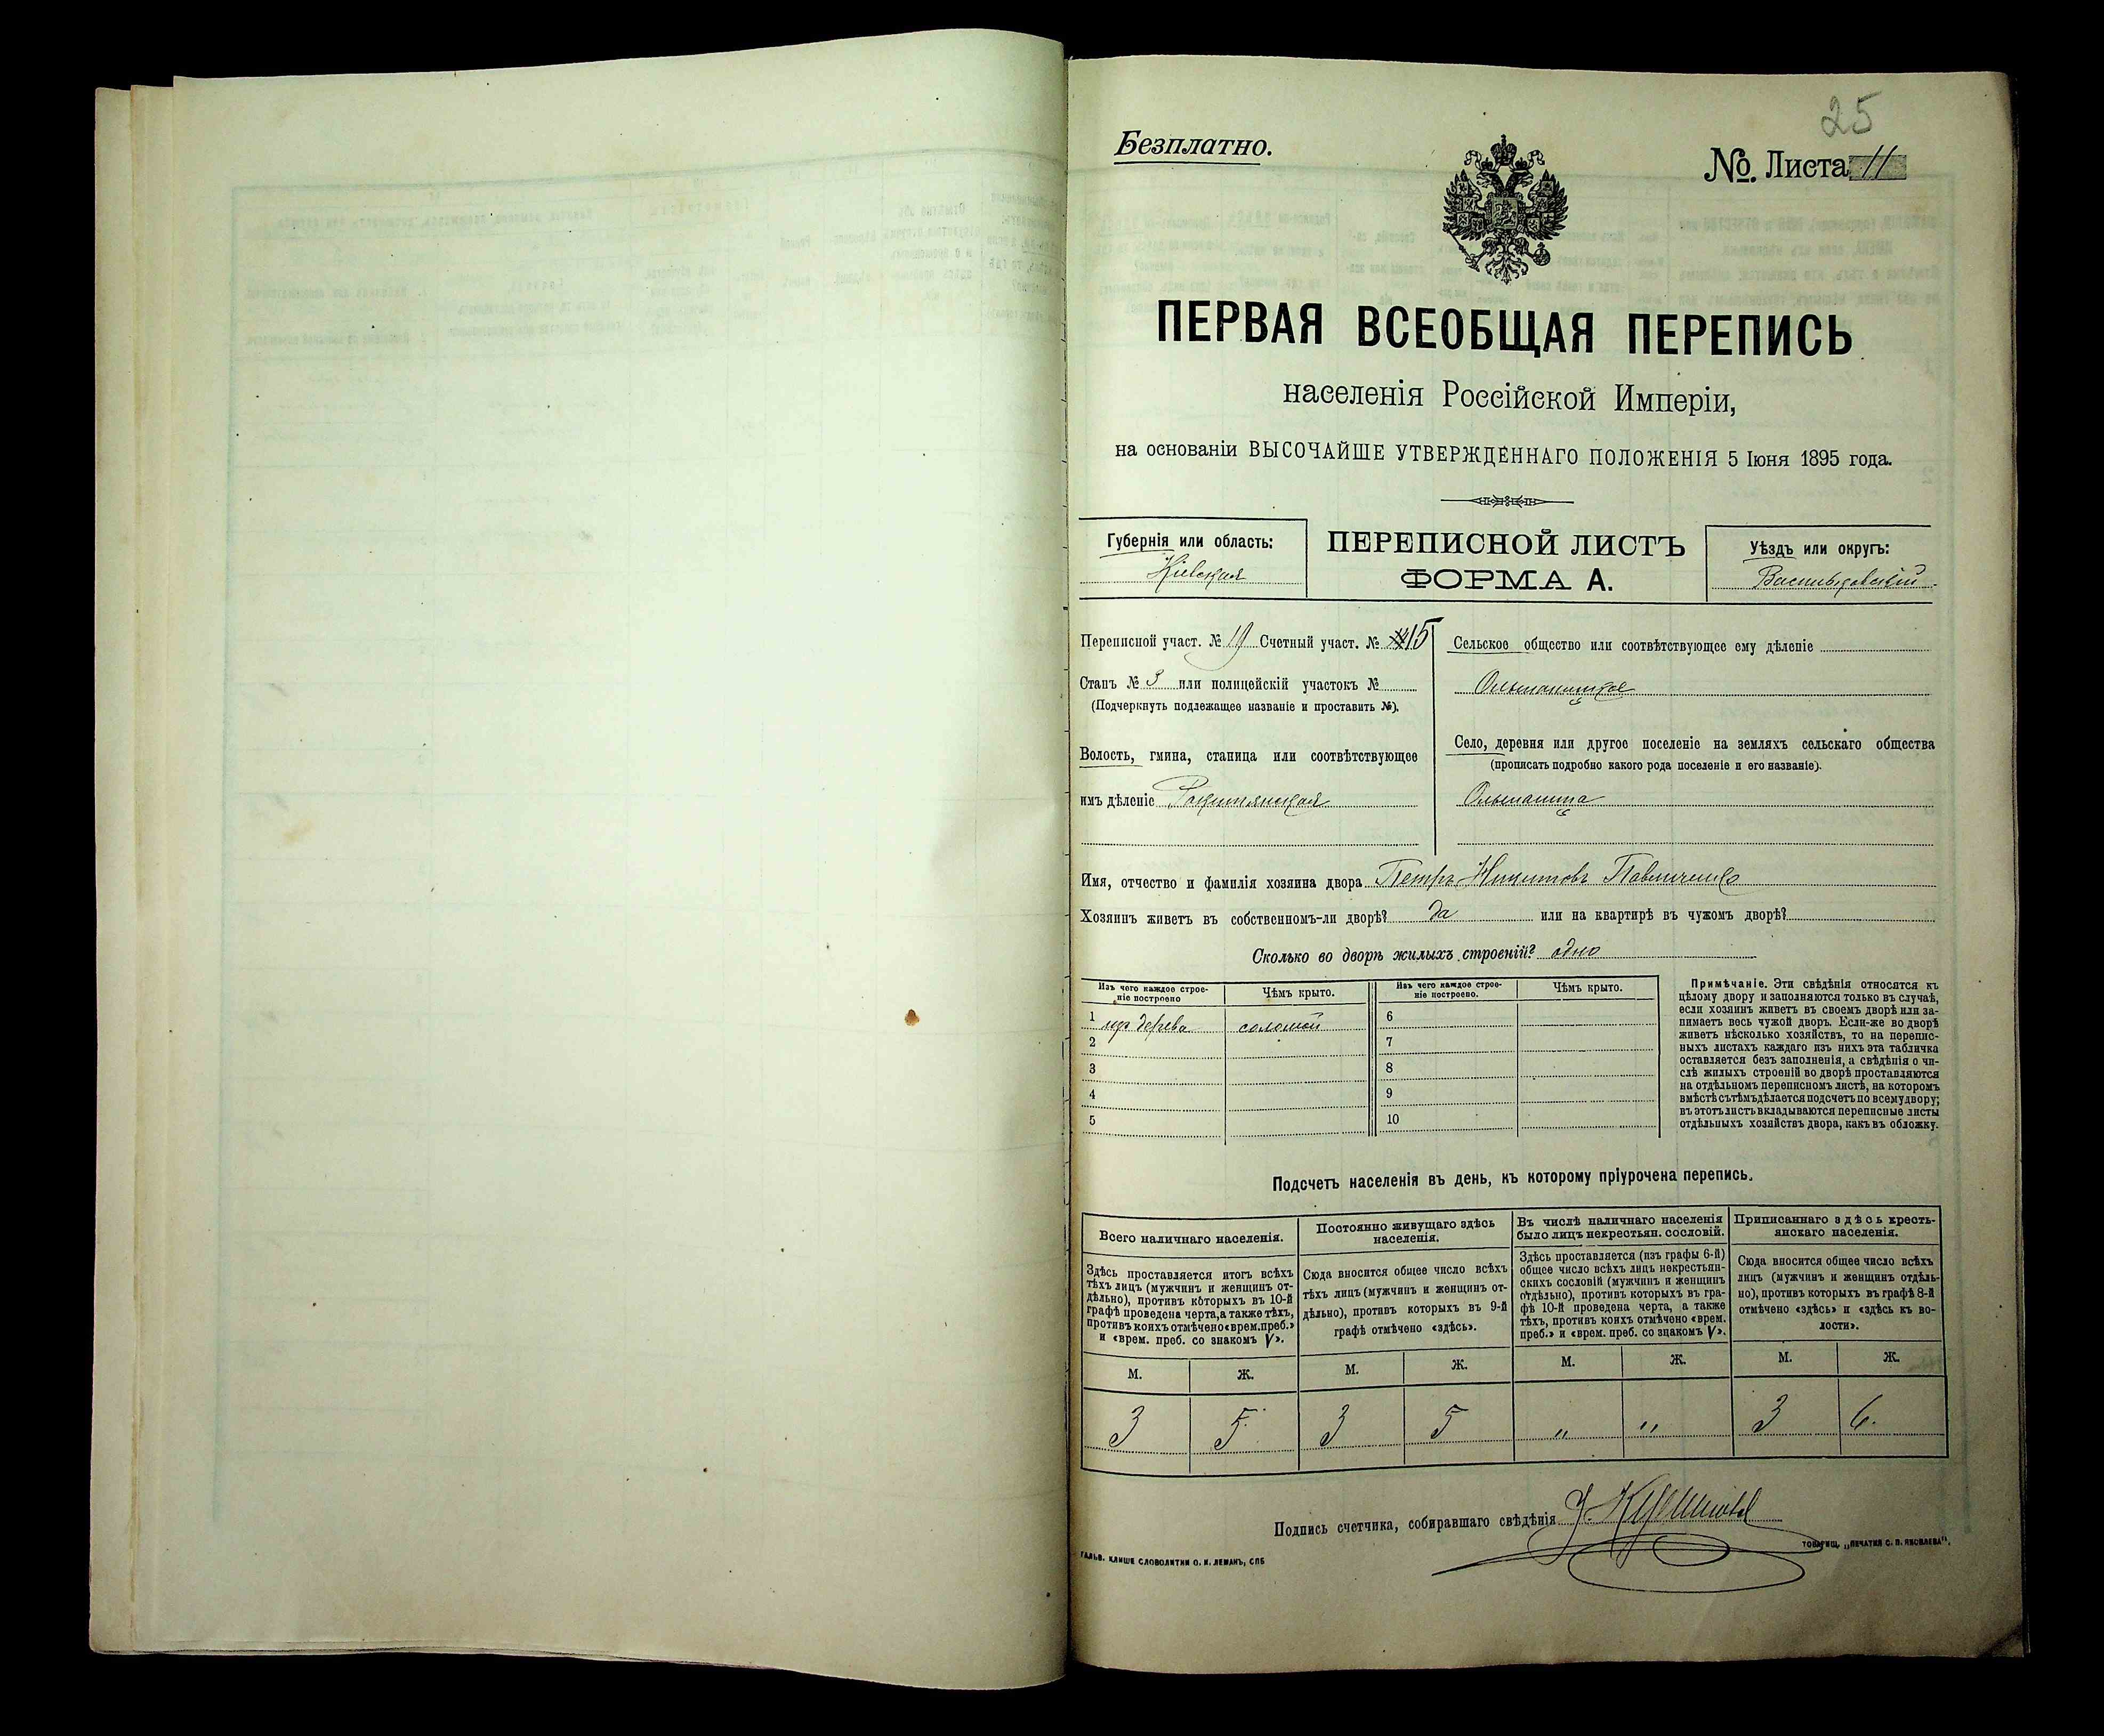 25
Безплатно.
№. Листа 11
ПЕРВАЯ ВСЕОБЩАЯ ПЕРЕПИСЬ
населенія Россійской Имперіи,
на основаніи ВЫСОЧАЙШЕ УТВЕРЖДЕННАГО ПОЛОЖЕНІЯ 5 Іюня 1895 года.
Губернія или область:
Кіевская
ПЕРЕПИСНОЙ ЛИСТЪ
ФОРМА А.
Уѣздъ или округъ:
Васильковскій
Переписной участ. № 19 Счетный участ. № 15
Станъ № 3 или полицейскій участокъ №
(Подчеркнуть подлежащее названіе и проставить №).
Волость, гмина, станица или соотвѣтствующее
имъ дѣленіе Рокитянская
Сельское общество или соотвѣтствующее ему дѣленіе
Ольшаницкое
Село, деревня или другое поселеніе на земляхъ сельскаго общества
(прописать подробно какого рода поселеніе и его названіе).
Ольшаница
Имя, отчество и фамилія хозяина двора Петръ Никитовъ Павличенко
Хозяинъ живетъ въ собственномъ-ли дворѣ? да или на квартирѣ въ чужомъ дворѣ?
Сколько во дворѣ жилыхъ строеній? одно
Изъ чего каждое строе-
ніе построено
Чѣмъ крыто.
Изъ чего каждое строе-
ніе построено.
Чѣмъ крыто.
1 изъ дерева соломой 6
2 7
3 8
4 9
5 10
Примѣчаніе. Эти свѣдѣнія относятся къ
цѣлому двору и заполняются только въ случаѣ,
если хозяинъ живетъ въ своемъ дворѣ или за-
нимаетъ весь чужой дворъ. Если-же во дворѣ
живетъ нѣсколько хозяйствъ, то на перепис-
ныхъ листахъ каждаго изъ нихъ эта табличка
оставляется безъ заполненія, а свѣдѣнія о чи-
слѣ жилыхъ строеній во дворѣ проставляются
на отдѣльномъ переписномъ листѣ, на которомъ
вмѣстѣ съ тѣмъ дѣлается подсчетъ по всему двору;
въ этотъ листъ вкладываются переписные листы
отдѣльныхъ хозяйствъ двора, какъ въ обложку.
Подсчетъ населенія въ день, къ которому пріурочена перепись.
Всего наличнаго населенія.
Здѣсь проставляется итогъ всѣхъ
тѣхъ лицъ (мужчинъ и женщинъ от-
дѣльно), противъ которыхъ въ 10-й
графѣ проведена черта, а также тѣхъ,
противъ коихъ отмѣчено «врем. преб.»
и «врем. преб. со знакомъ V».
Постоянно живущаго здѣсь
населенія.
Сюда вносится общее число всѣхъ
тѣхъ лицъ (мужчинъ и женщинъ от-
дѣльно), противъ которыхъ въ 9-й
графѣ отмѣчено «здѣсь».
Въ числѣ наличнаго населенія
было лицъ некрестьян. сословій.
Здѣсь проставляется (изъ графы 6-й)
общее число всѣхъ лицъ некрестьян-
скихъ сословій (мужчинъ и женщинъ
отдѣльно), противъ которыхъ въ гра-
фѣ 10-й проведена черта, а также
тѣхъ, противъ коихъ отмѣчено «врем.
преб.» и «врем. преб. со знакомъ V».
Приписаннаго здѣсь кресть-
янскаго населенія.
Сюда вносится общее число всѣхъ
лицъ (мужчинъ и женщинъ отдѣль-
но), противъ которыхъ въ графѣ 8-й
отмѣчено «здѣсь» и «здѣсь къ во-
лости».
М. Ж. М. Ж. М. Ж. М. Ж.
3 5 3 5 „ „ 3 6.
Подпись счетчика, собиравшаго свѣдѣнія
ГАЛЬВ. КЛИШЕ СЛОВОЛИТНИ О. И. ЛЕМАНЪ, СПБ
ТОВАРИЩ. „ПЕЧАТНЯ С. П. ЯКОВЛЕВА",